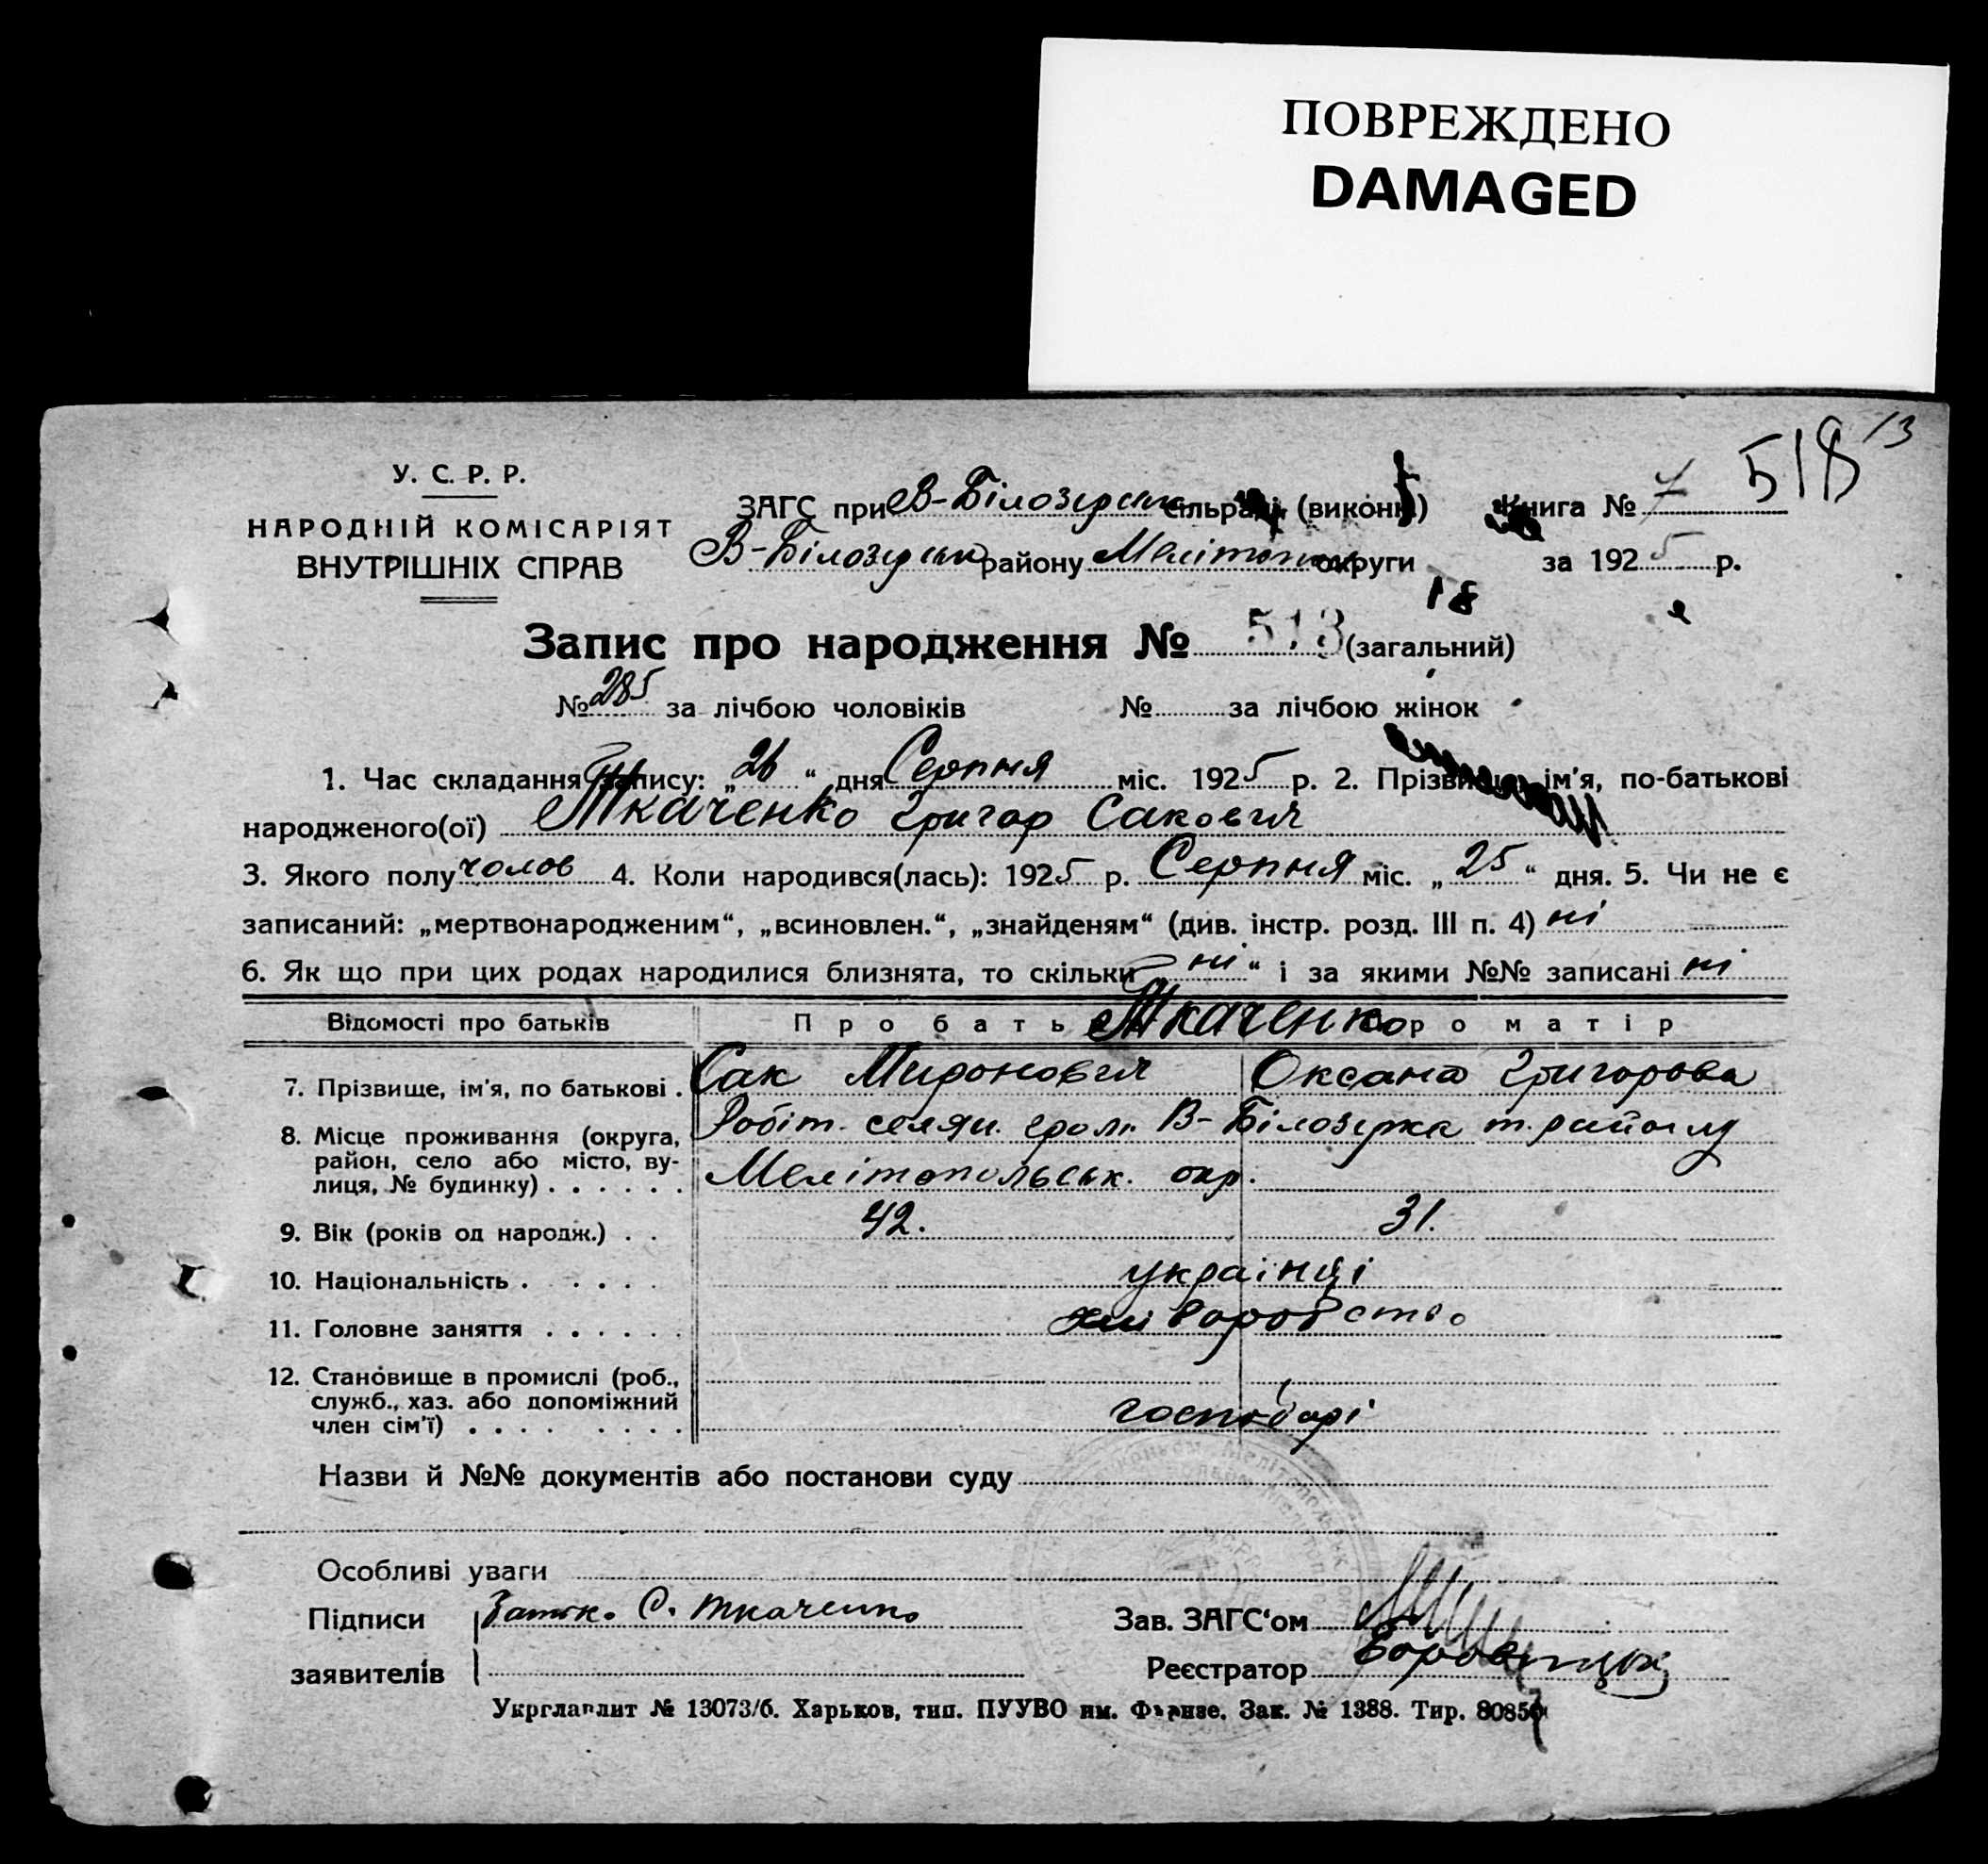 ПОВРЕЖДЕНО
DAMAGED
518 13
У. С. Р. Р.
НАРОДНІЙ КОМІСАРІЯТ
ВНУТРІШНІХ СПРАВ
ЗАГС при В-Білозерськ сільраді (виконк) Книга № 7
В-Білозерськ району Мелітопольськ округи за 1925 р.
18
Запис про народження № 513 (загальний)
№ 285 за лічбою чоловіків № за лічбою жінок
1. Час складання запису: „26“ дня Серпня міс. 1925 р. 2. Прізвище, ім'я, по-батькові
народженого(ої) Ткаченко Григор Сакович
3. Якого полу чолов 4. Коли народився(лась): 1925 р. Серпня міс. „25“ дня. 5. Чи не є
записаний: „мертвонародженим“, „всиновлен.“, „знайденям“ (див. інстр. розд. III п. 4) ні
6. Як що при цих родах народилися близнята, то скільки „ні“ і за якими №№ записані ні
Відомості про батьків Про батька Про матір
Ткаченко
7. Прізвище, ім'я, по батькові . Сак Миронович Оксана Григорова
8. Місце проживання (округа, район, село або місто, вулиця, № будинку) . . . . . . Робіт. селян. В-Білозерка т. району
Мелітопольськ. окр.
9. Вік (років од народж.) . . 42. 31.
10. Національність . . . . . українці
11. Головне заняття . . . . . . хліборобство
12. Становище в промислі (роб.,
служб., хаз. або допоміжний
член сім'ї) . . . . . . . . господарі
Назви й №№ документів або постанови суду
Особливі уваги
Підписи С. Ткаченко Зав. ЗАГС‘ом
заявителів Реєстратор
Укрглавлит № 13073/б. Харьков, тип. ПУУВО им. Фрунзе. Зак. № 1388. Тир. 80850